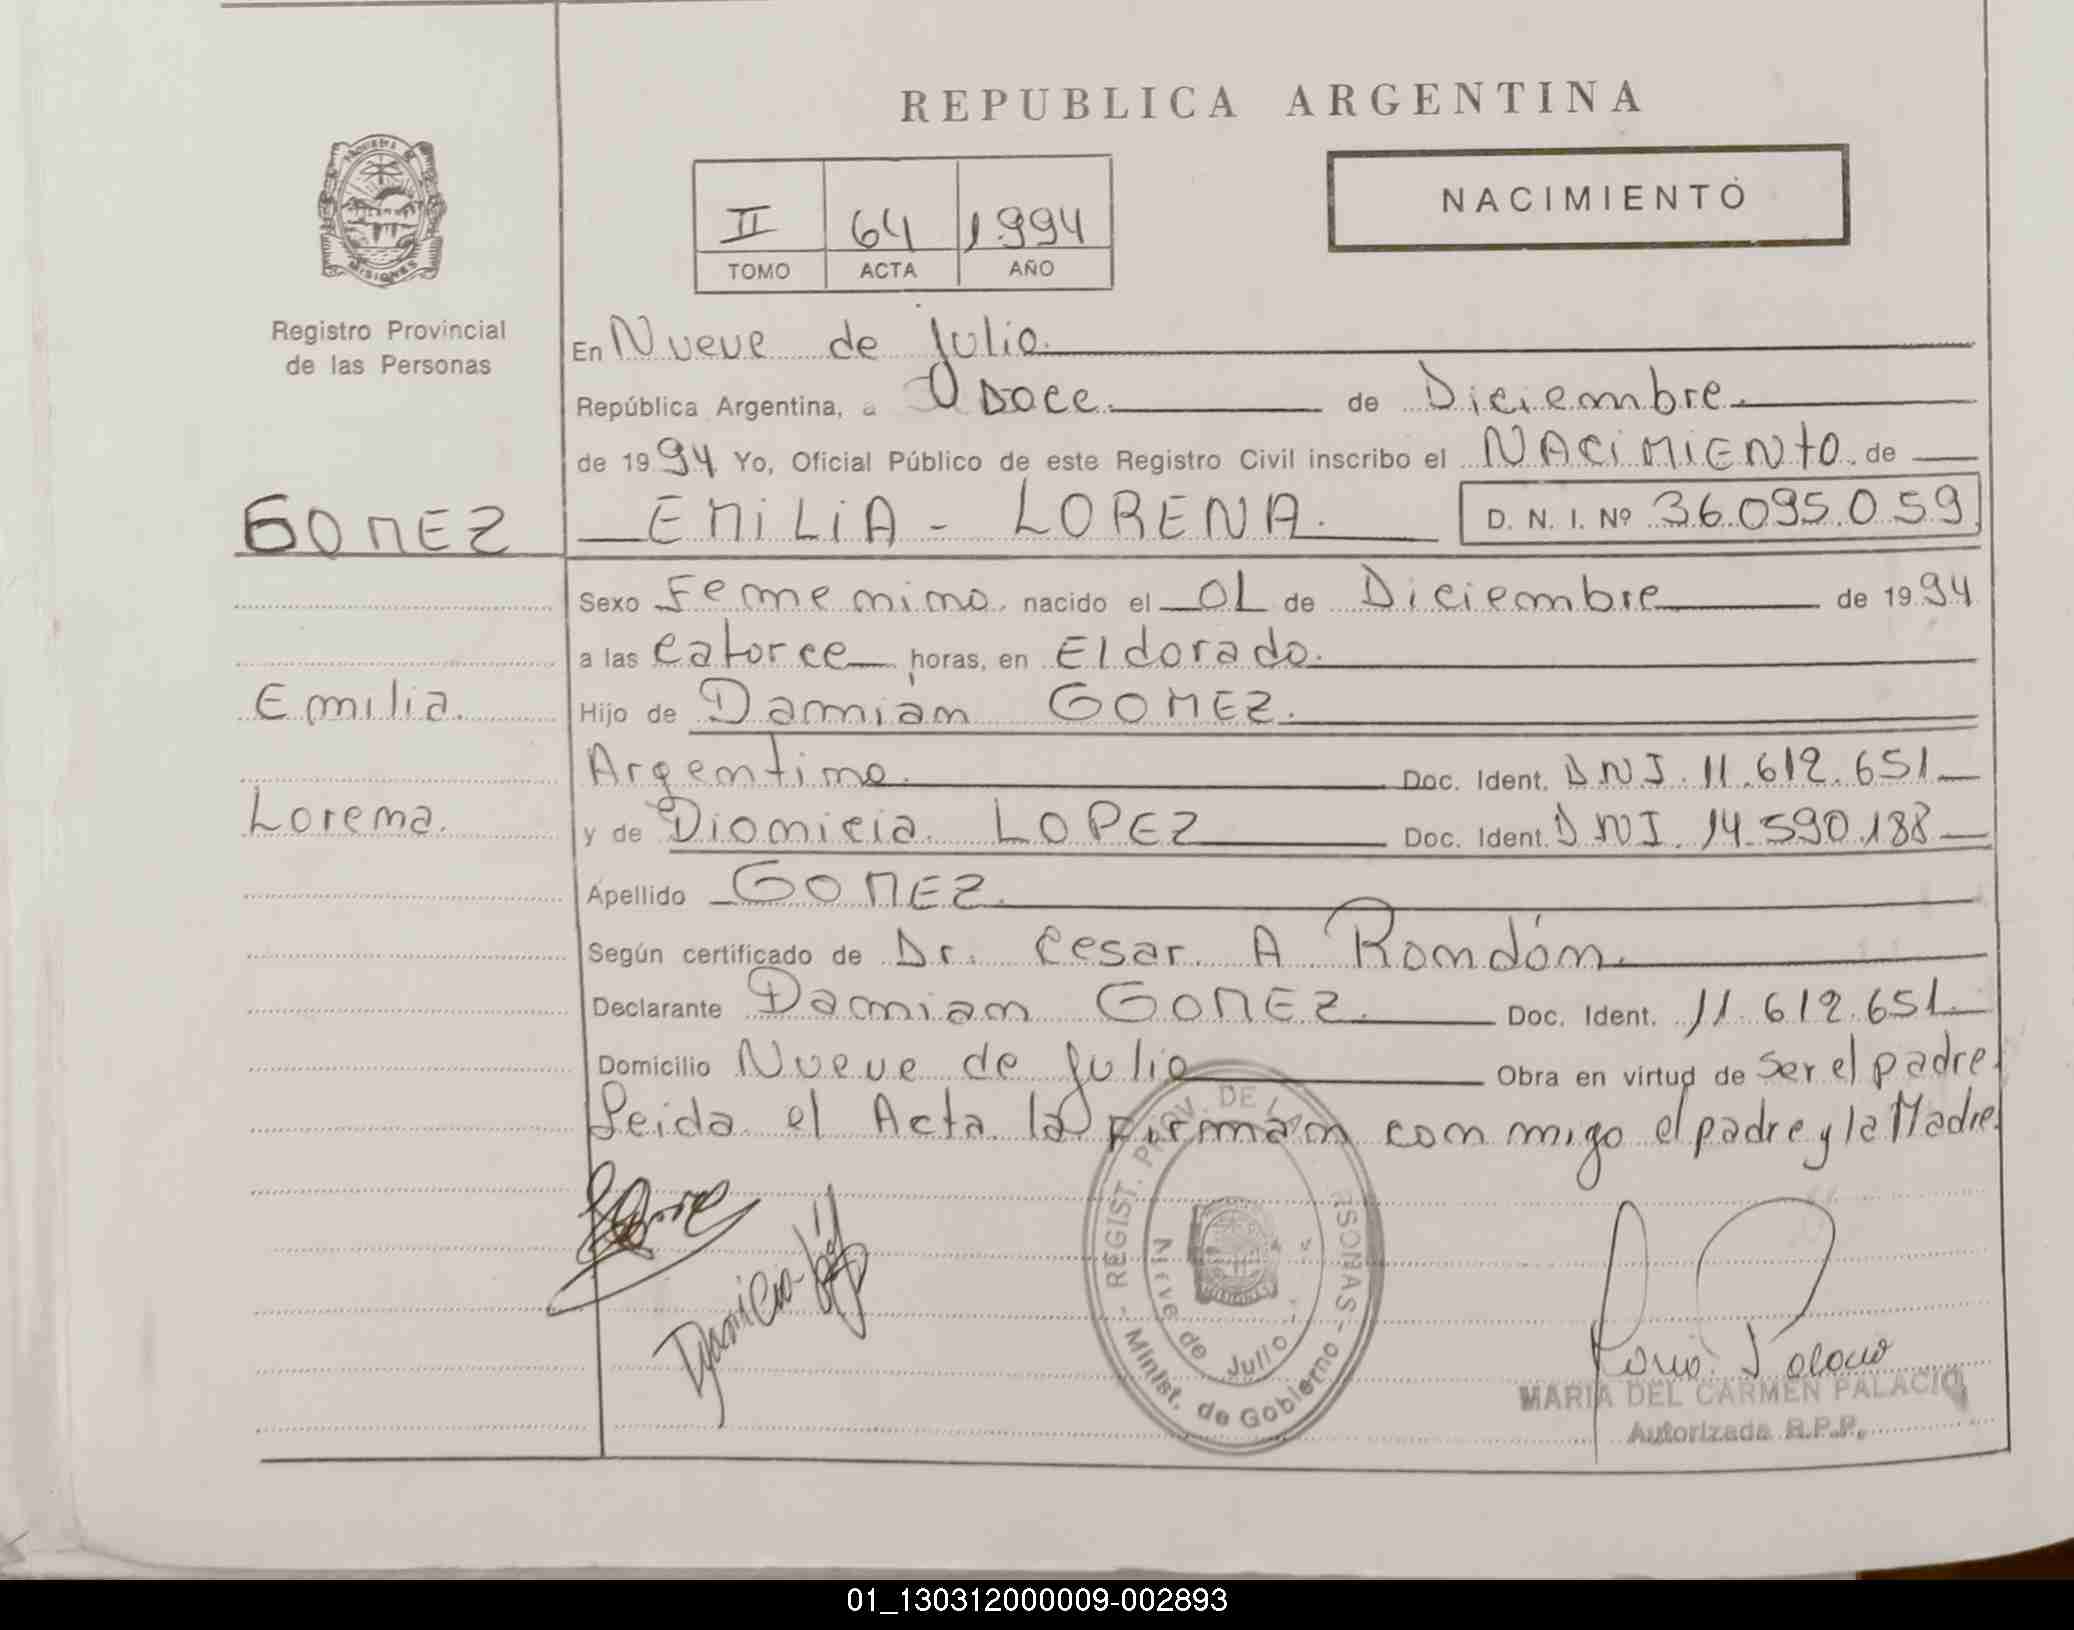 REPUBLICA ARGENTINA
NACIMIENTO
II 64 1994
TOMO ACTA AÑO
MISIONES
Registro Provincial
de las Personas
En Nueve de Julio.
República Argentina, a Doce. de Diciembre.
de 1994 Yo, Oficial Público de este Registro Civil inscribo el NACIMIENTO de
GOMEZ
EMILIA - LORENA. D. N. I. Nº 36.095.059
Sexo Femenino. nacido el 01 de Diciembre de 1994
a las catorce horas, en Eldorado.
Emilia.
Hijo de Damián GOMEZ.
Argentino. Doc. Ident. DNI. 11.612.651
Lorena.
y de Dionicia LOPEZ Doc. Ident. DNI. 14.590.188
Apellido GOMEZ.
Según certificado de Dr. Cesar A Rondón.
Declarante Damian GOMEZ. Doc. Ident. 11.612.651.
Domicilio Nueve de Julio Obra en virtud de ser el padre.
Leida el Acta la firman con migo el padre y la Madre.
REGIST. PROV. DE LAS PERSONAS
Nueve de Julio
Minist. de Gobierno
MARIA DEL CARMEN PALACIO
Autorizada R.P.P.
01_130312000009-002893